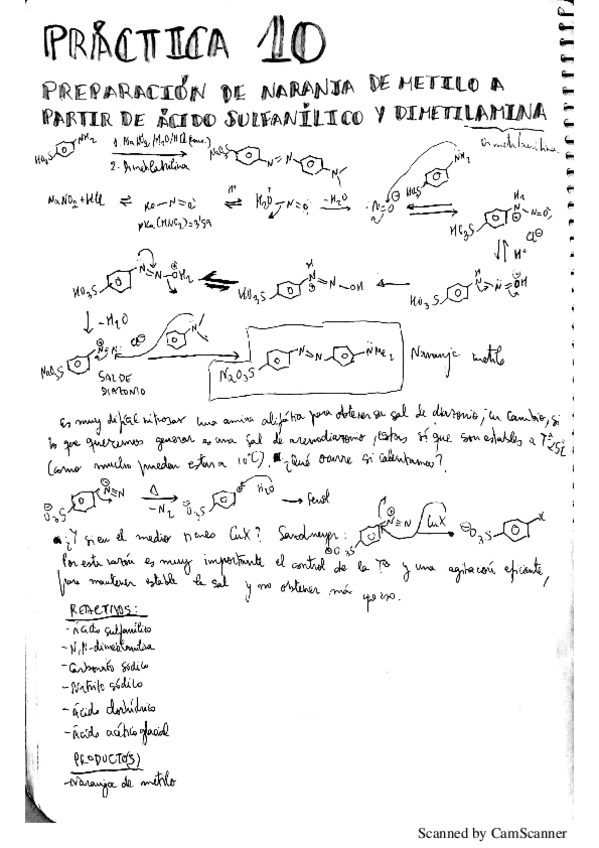 PRÁCTICA 10
PREPARACIÓN DE NARANJA DE METILO A
PARTIR DE ÁCIDO SULFANÍLICO Y DIMETILAMINA
NH2
HO3S
1. NaNO2/H2O/HCl
2. Dimetilanilina
N=N
NaNO2 + HCl ⇌ HO-N=O ⇌ H2O-N=O -H2O N=O
pKa (HNO2) = 3'59
HO3S
Cl
H+
HO3S N=N-OH2 HO3S N-N-OH HO3S N=N=OH
↓ -H2O
SAL DE
DIAZONIO
N=N NMe2 Naranja metilo
Es muy difícil nitrosar una amina alifática para obtener su sal de diazonio, en cambio, si
lo que queremos generar es una sal de arenodiazonio, estas sí que son estables a Tª
(como mucho pueden estar a 10°C). ¿Qué ocurre si calentamos?
O3S N≡N Δ -N2 O3S H2O → Fenol
¿Y si en el medio tienes CuX? Sandmeyer: N≡N CuX O3S X
Por esta razón es muy importante el control de la Tª y una agitación eficiente,
para mantener estable la sal y no obtener más
REACTIVOS:
- Ácido sulfanílico
- N,N-dimetilanilina
- Carbonato sódico
- Nitrito sódico
- Ácido clorhídrico
- Ácido acético glacial
PRODUCTO(S)
- Naranja de metilo
Scanned by CamScanner